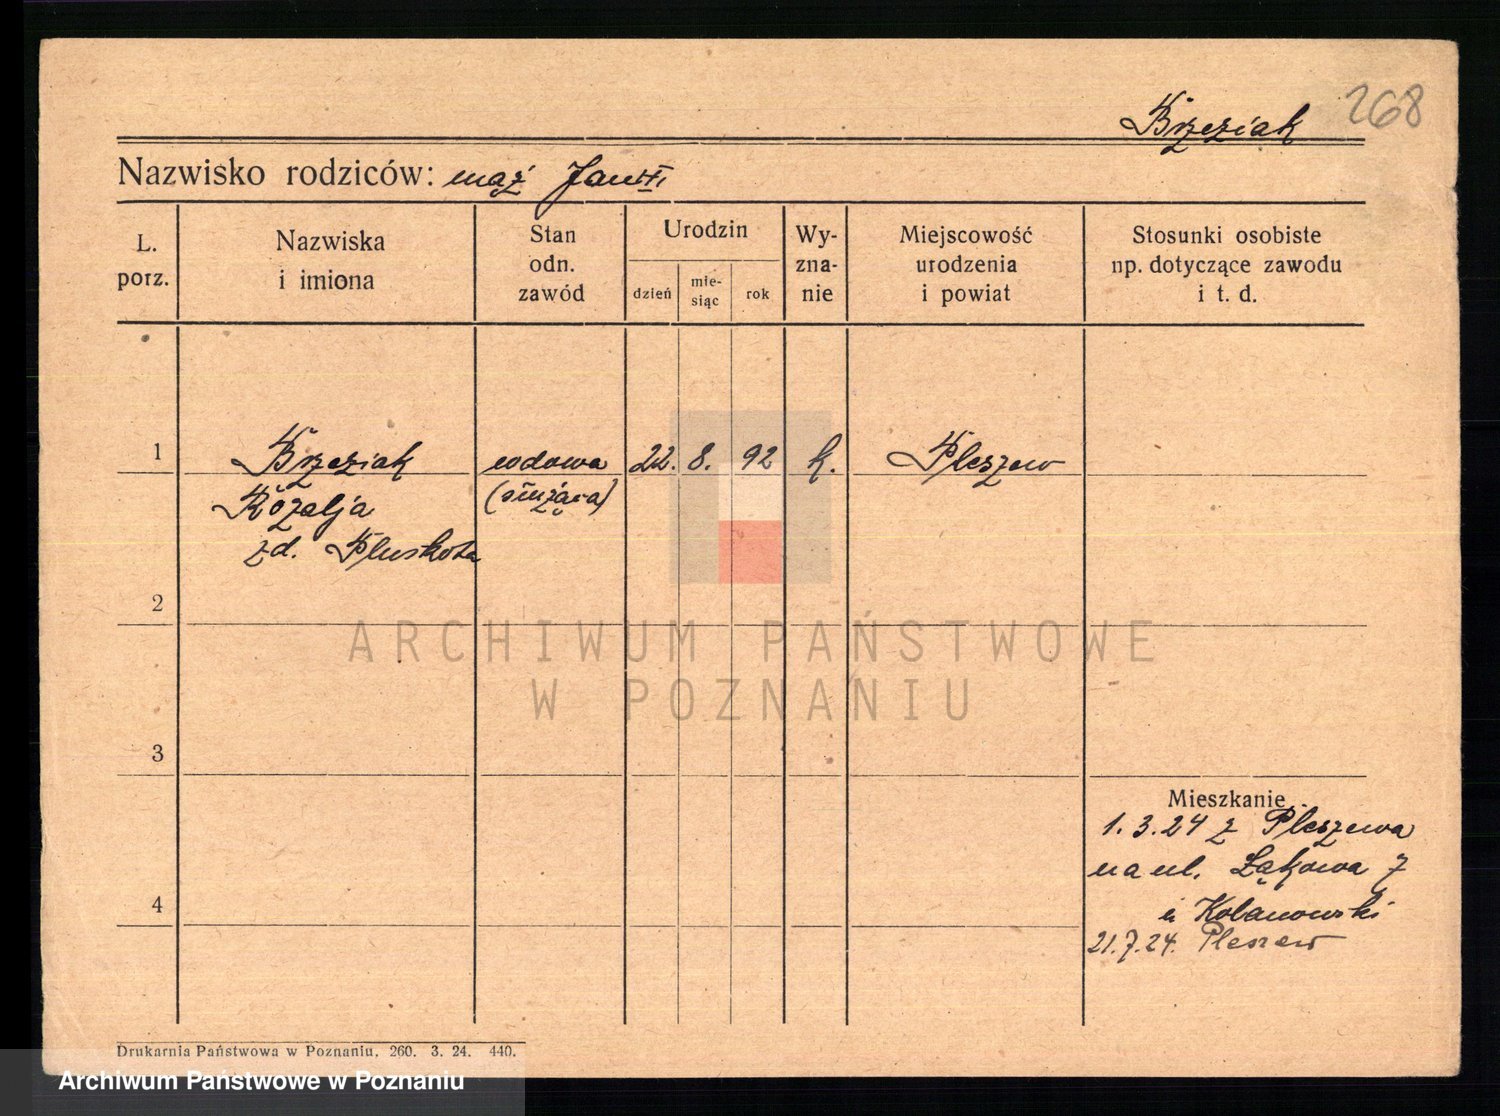 268
Brzeziak
Nazwisko rodziców: mąż Jan
L. porz.
Nazwiska i imiona
Stan odn. zawód
Urodzin
dzień
mie-
siąc
rok
Wy-
zna-
nie
Miejscowość
urodzenia
i powiat
Stosunki osobiste
np. dotyczące zawodu
i t. d.
1 Brzeziak wdowa 22. 8. 92 k. Pleszew
Rózalja (służąca)
zd. Pluskota
2
ARCHIWUM PAŃSTWOWE
W POZNANIU
3
Mieszkanie
1.3.24 z Pleszewa
na ul. Łąkowa 7
u Kolanowski
4
21.7.24. Pleszew
Drukarnia Państwowa w Poznaniu. 260. 3. 24. 440.
Archiwum Państwowe w Poznaniu